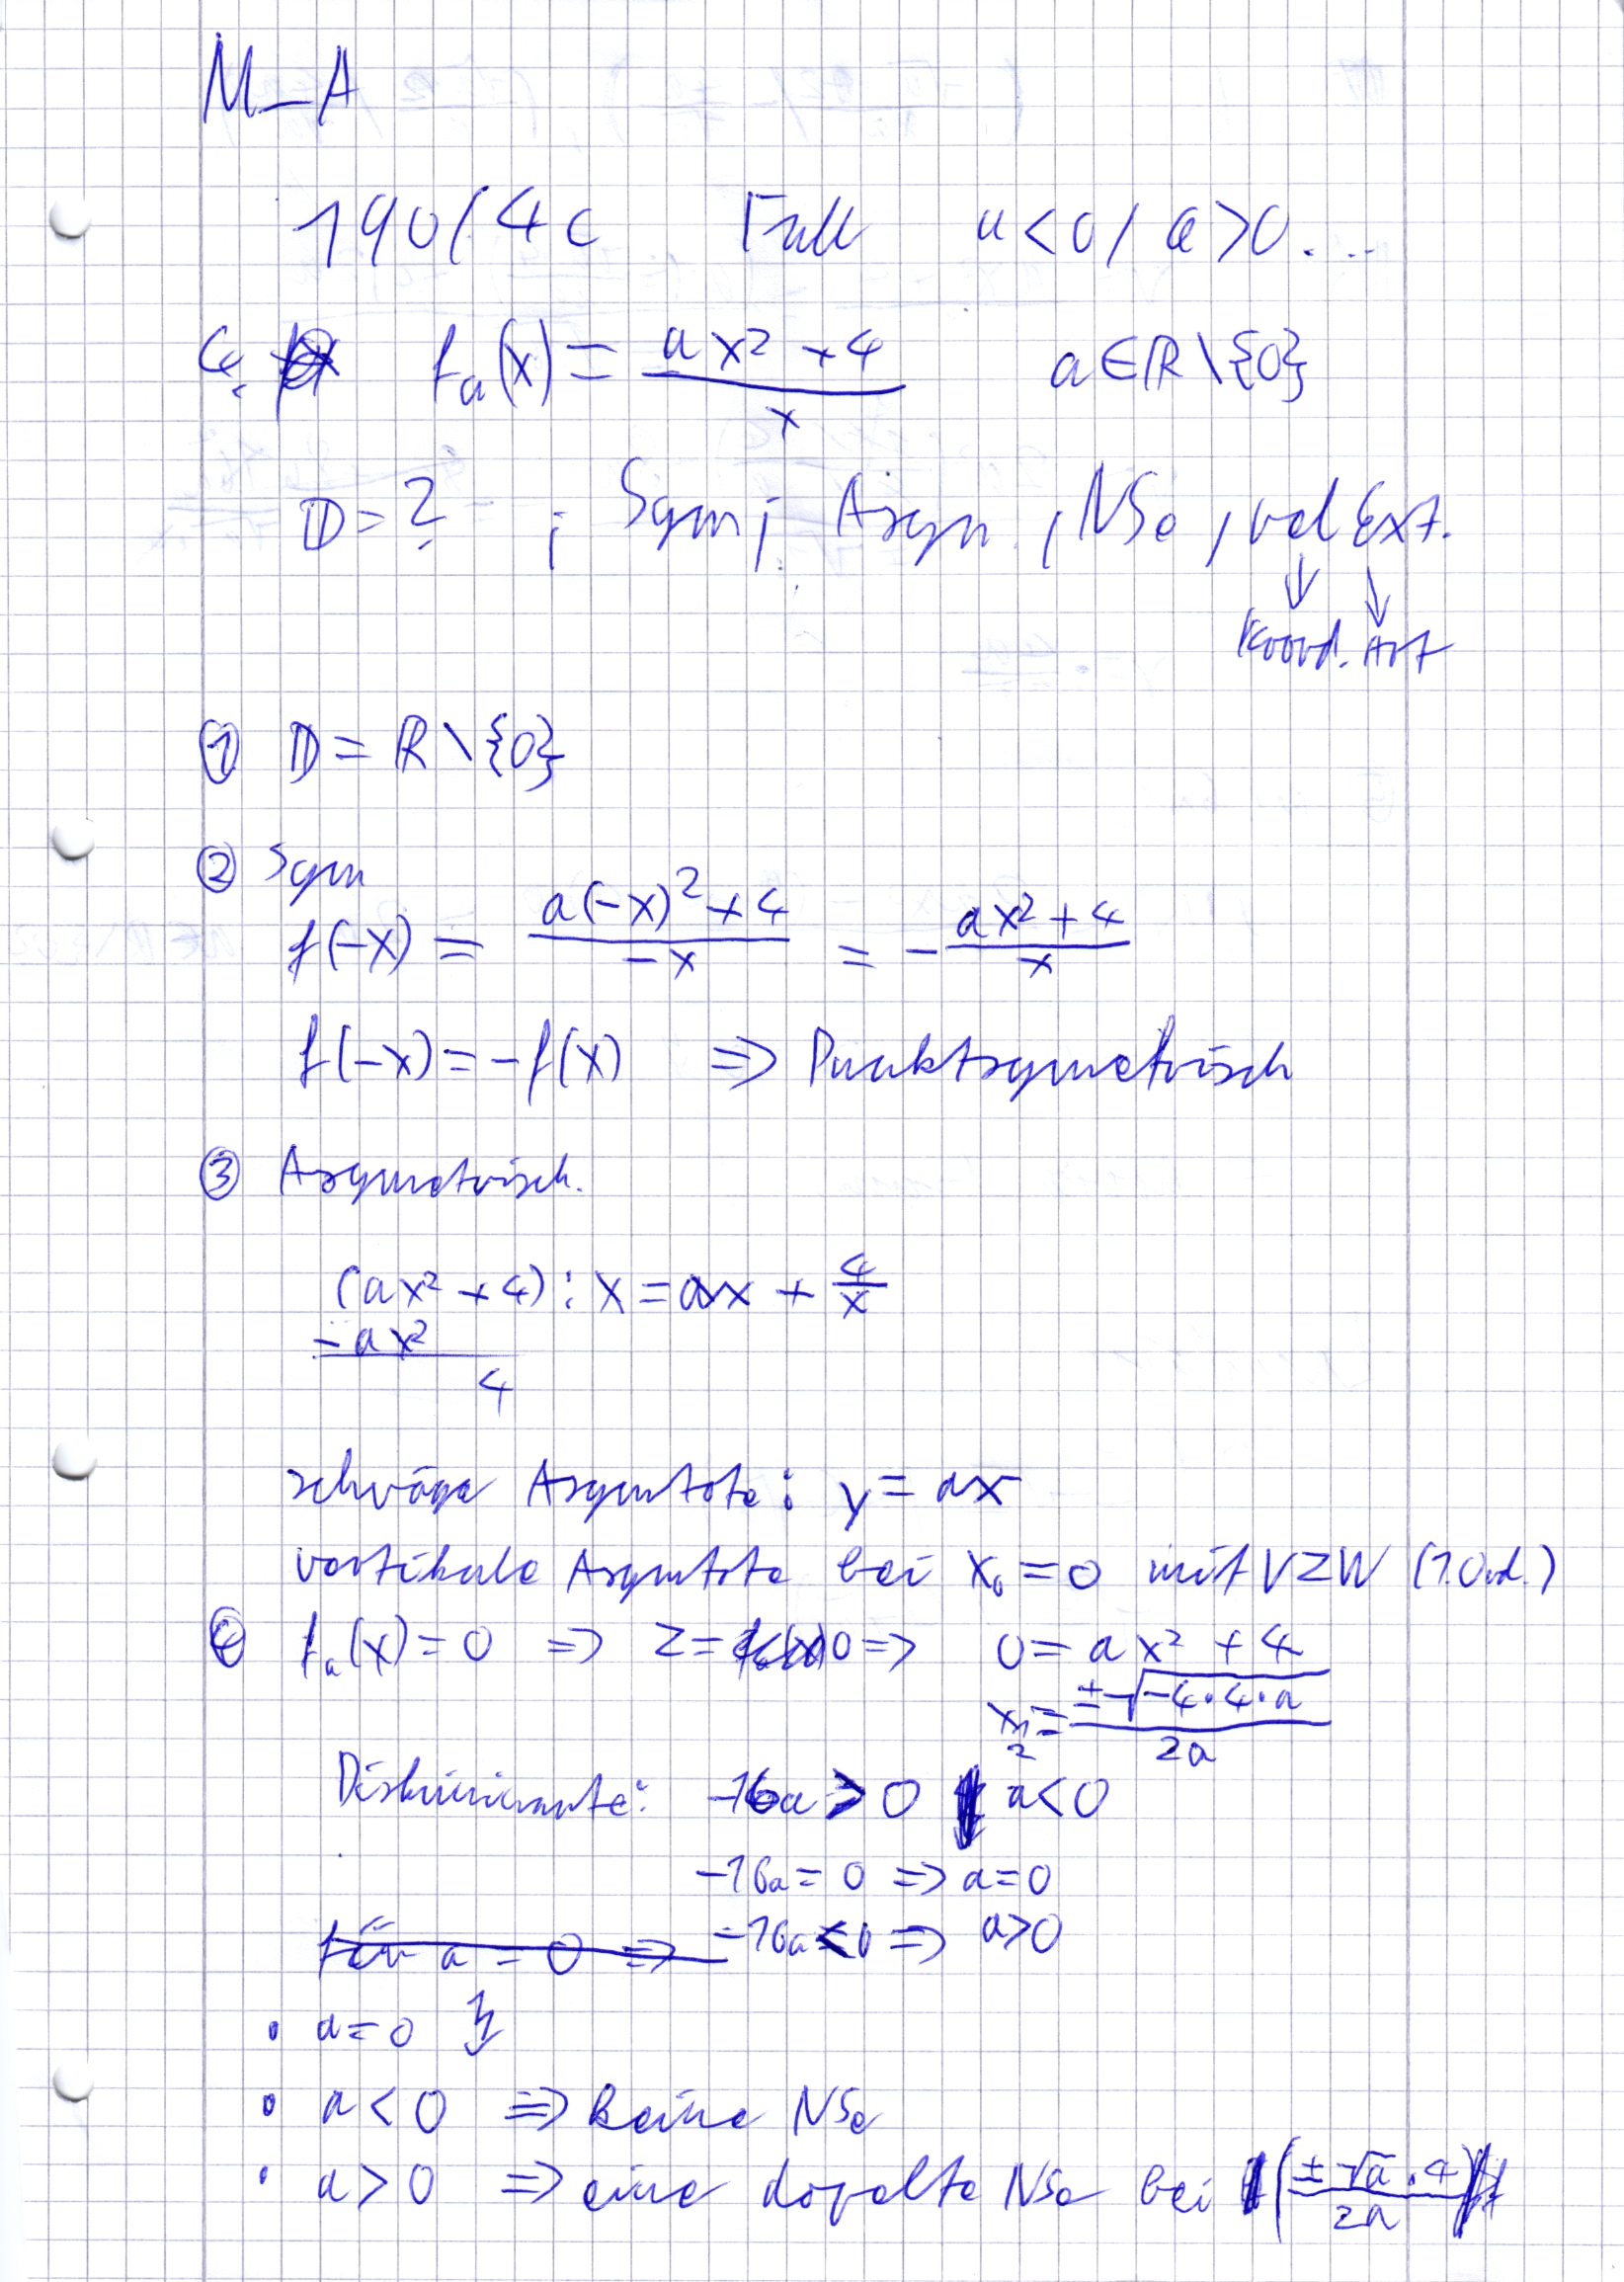 M_A
190/4c Fall a<0/a>0...
4. f_a(x) = (ax² + 4)/x a∈ℝ\{0}
𝔻=? ; Sym; Asym. , NSe , rel Ext.
↓ ↓
Koord. Art
① 𝔻 = ℝ \ {0}
② Sym
f(-x) = (a(-x)² + 4)/(-x) = - (ax² + 4)/x
f(-x) = -f(x) => Punktsymetrisch
③ Asymetrisch.
(ax² + 4) : x = ax + 4/x
-ax²
4
schräge Asymtote: y = ax
vertikale Asymtote bei x₀ = 0 mit VZW (1.Ord.)
④ f_a(x) = 0 => Z = 0 => 0 = ax² + 4
x₁,₂ = ±√(-4·4·a) / 2a
Diskriminante: -16a > 0 a<0
-16a = 0 => a=0
für a = 0 => -16a < 0 => a>0
• a=0 ↯
• a < 0 => keine NSe
• a > 0 => eine dopelte NSe bei (±√a·4 / 2a)